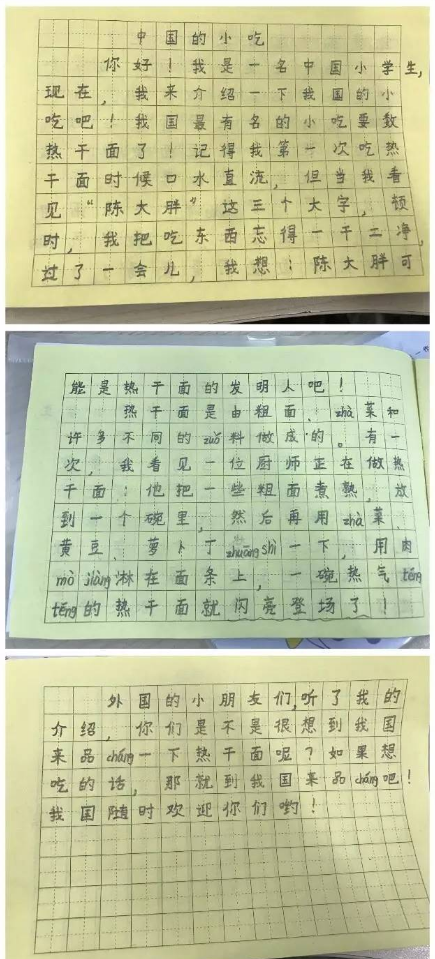 中国的小吃
你好！我是一名中国小学生，
现在，我来介绍一下我国的小
吃吧！我国最有名的小吃要数
热干面了！记得我第一次吃热
干面时候口水直流，但当我看
见“陈大胖”这三个大字，顿
时，我把吃东西忘得一干二净，
过了一会儿，我想：陈大胖可
能是热干面的发明人吧！
热干面是由粗面、zhà菜和
许多不同的zuǒ料做成的。有一
次，我看见一位厨师正在做热
干面：他把一些粗面煮熟，放
到一个碗里，然后再用zhà菜、
黄豆、萝卜丁zhuāngshì一下，用肉
mò jiàng淋在面条上，一碗热气téng
téng的热干面就闪亮登场了！
外国的小朋友们，听了我的
介绍，你们是不是很想到我国
来品cháng一下热干面呢？如果想
吃的话，那就到我国来品cháng吧！
我国随时欢迎你们哟！